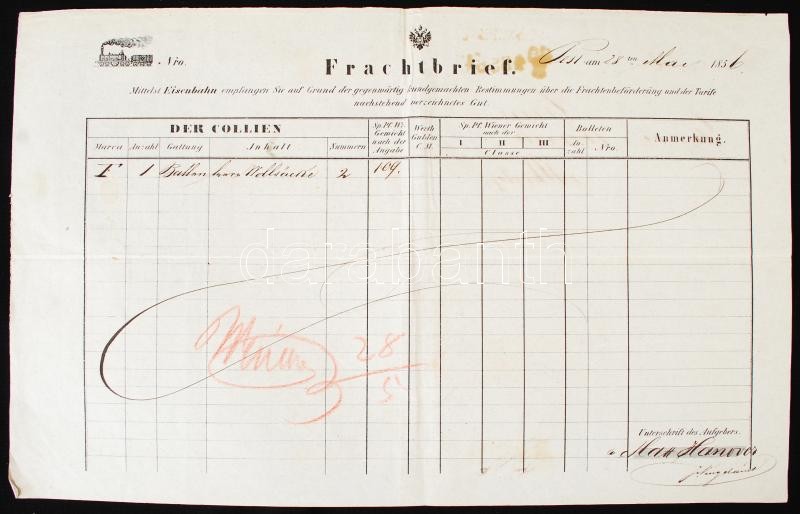 Nro.
Frachtbrief.
Pest am 28 ten Mai 1856
Mittelst Eisenbahn empfangen Sie auf Grund der gegenwärtig kundgemachten Bestimmungen über die Frachtenbeförderung und der Tarife
nachstehend verzeichnetes Gut.
DER COLLIEN
Marca Anzahl Gattung Inhalt Nummern
Sp. Pf. W.
Gewicht
nach der
Angabe
Werth
Gulden
C. M.
Sp. Pf. Wiener Gewicht
nach der
I II III
Classe
Bolleten
An-
zahl Nro.
Anmerkung.
1 Ballen leere Wollsäcke 2 109.
darabanth
28
5
Unterschrift des Aufgebers.
Max Hanover